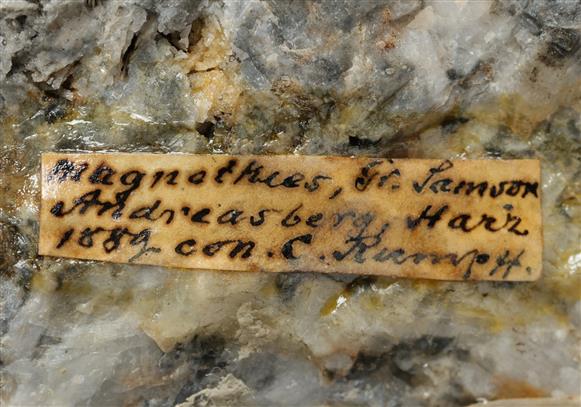 Magnetkies, Gr. Samson
Andreasberg, Harz
1889 con. C. Rumpff.